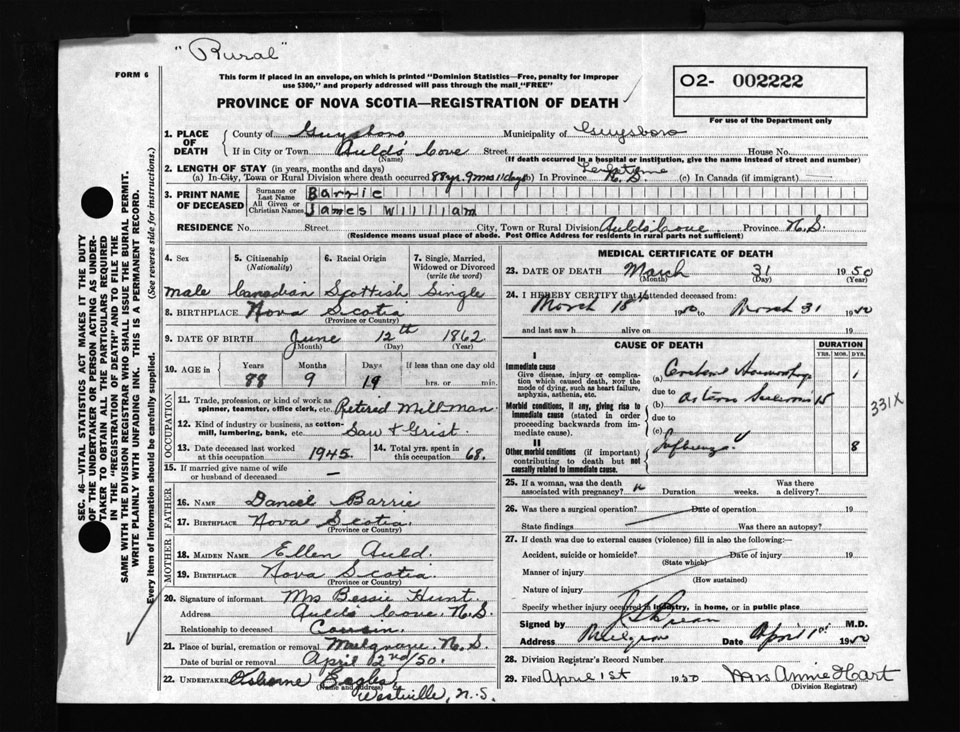 "Rural"
FORM 6
This form if placed in an envelope, on which is printed "Dominion Statistics—Free, penalty for improper
use $300," and properly addressed will pass through the mail "FREE"
PROVINCE OF NOVA SCOTIA—REGISTRATION OF DEATH
O2- 002222
For use of the Department only
1. PLACE OF DEATH
County of Guysboro Municipality of Guysboro
If in City or Town Auld's Cove Street House No.
(Name) (If death occurred in a hospital or institution, give the name instead of street and number)
2. LENGTH OF STAY (in years, months and days)
(a) In City, Town or Rural Division where death occurred 88 yr. 9 mos 11 days (b) In Province Lifetime N.S. (c) In Canada (if immigrant)
3. PRINT NAME OF DECEASED
Surname or Last Name Barrie
All Given or Christian Names James William
RESIDENCE No. Street City, Town or Rural Division Auld's Cove Province N.S.
(Residence means usual place of abode. Post Office Address for residents in rural parts not sufficient)
4. Sex 5. Citizenship (Nationality) 6. Racial Origin 7. Single, Married, Widowed or Divorced (write the word)
male Canadian Scottish Single
8. BIRTHPLACE Nova Scotia
(Province or Country)
9. DATE OF BIRTH June 12th 1862
(Month) (Day) (Year)
10. AGE in Years Months Days If less than one day old
88 9 19 hrs. or min.
OCCUPATION
11. Trade, profession or kind of work as spinner, teamster, office clerk, etc. Retired Millman
12. Kind of industry or business, as cotton-mill, lumbering, bank, etc. Saw & Grist
13. Date deceased last worked at this occupation 1945. 14. Total yrs. spent in this occupation 68.
15. If married give name of wife or husband of deceased —
FATHER
16. NAME Daniel Barrie
17. BIRTHPLACE Nova Scotia.
(Province or Country)
MOTHER
18. MAIDEN NAME Ellen Auld.
19. BIRTHPLACE Nova Scotia.
(Province or Country)
20. Signature of informant Mrs Bessie Hunt.
Address Auld's Cove. N.S.
Relationship to deceased Cousin.
21. Place of burial, cremation or removal Mulgrave. N.S.
Date of burial or removal April 2nd/50.
22. UNDERTAKER Osborne Eagles
(Name and address) Westville, N.S.
MEDICAL CERTIFICATE OF DEATH
23. DATE OF DEATH March 31 1950
(Month) (Day) (Year)
24. I HEREBY CERTIFY that I attended deceased from:
March 18th 1950 to March 31 1950
and last saw h alive on 19
CAUSE OF DEATH DURATION
YRS. MOS. DYS.
I
Immediate cause
Give disease, injury or complication which caused death, NOT the mode of dying, such as heart failure, asphyxia, asthenia, etc.
(a) Cerebral Hemorrhage 1
due to
Morbid conditions, if any, giving rise to immediate cause (stated in order proceeding backwards from immediate cause).
(b)
due to
(c)
II
Other morbid conditions (if important) contributing to death but not causally related to immediate cause.
Influenza 8
331X
25. If a woman, was the death associated with pregnancy? Duration weeks. Was there a delivery?
26. Was there a surgical operation? Date of operation 19
State findings Was there an autopsy?
27. If death was due to external causes (violence) fill in also the following:—
Accident, suicide or homicide? Date of injury 19
(State which)
Manner of injury
(How sustained)
Nature of injury
Specify whether injury occurred in industry, in home, or in public place
Signed by M.D.
Address Mulgrave Date April 1st 1950
28. Division Registrar's Record Number
29. Filed April 1st 1950 Mrs Annie Hart
(Division Registrar)
SEC. 46 VITAL STATISTICS ACT MAKES IT THE DUTY
OF THE UNDERTAKER OR PERSON ACTING AS UNDER-
TAKER TO OBTAIN ALL THE PARTICULARS REQUIRED
IN THE "REGISTRATION OF DEATH" AND TO FILE THE
SAME WITH THE DIVISION REGISTRAR WHO SHALL ISSUE THE BURIAL PERMIT.
WRITE PLAINLY WITH UNFADING INK. THIS IS A PERMANENT RECORD.
Every item of information should be carefully supplied. (See reverse side for instructions.)